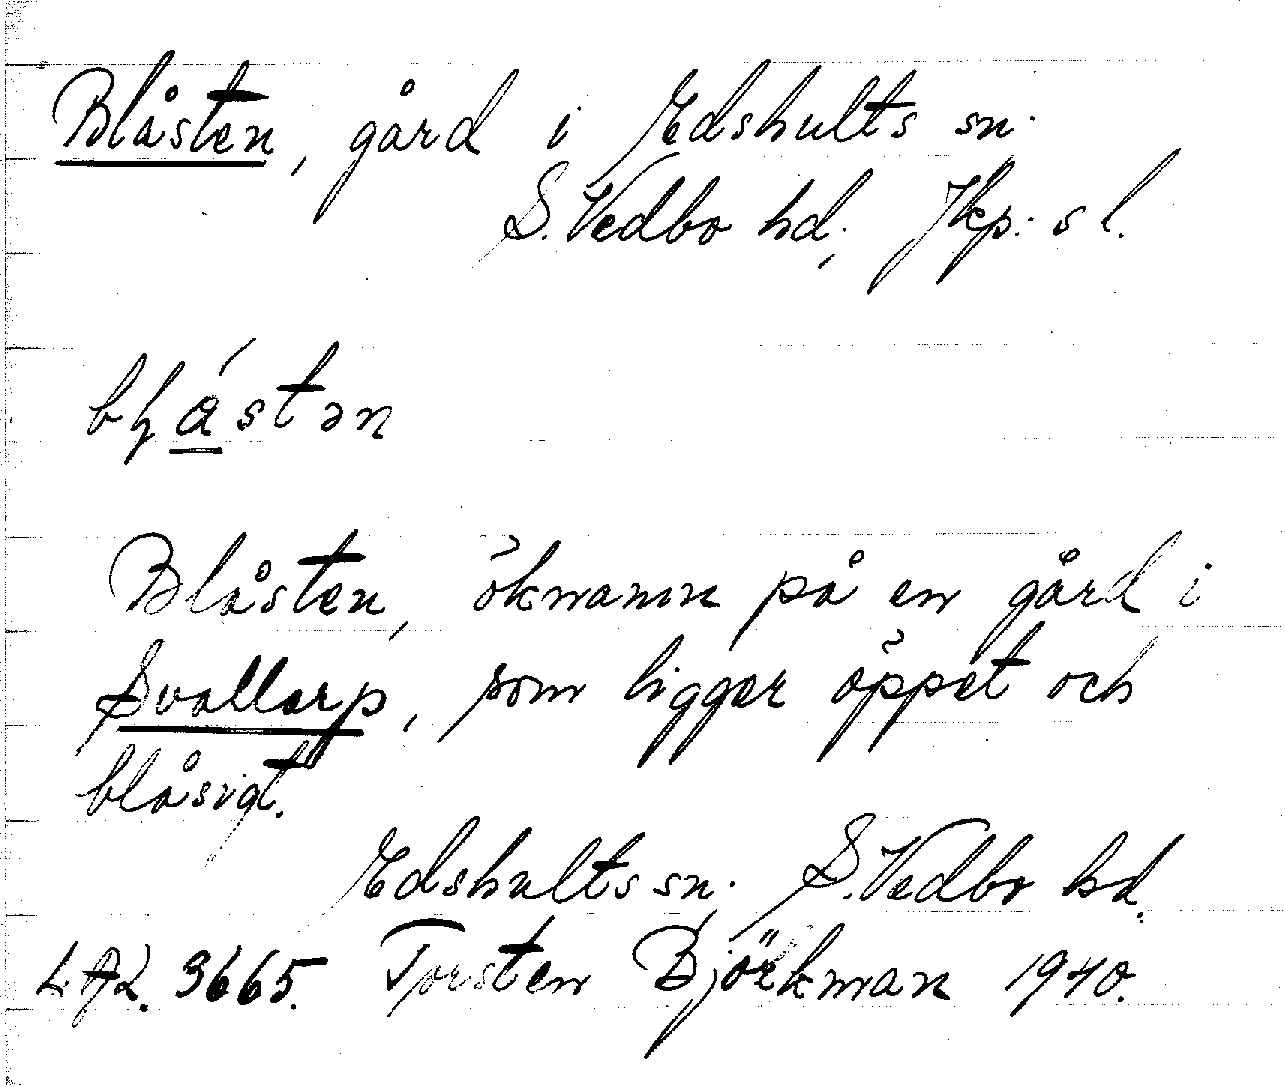 Blåsten, gård i Edshults sn.
S. Vedbo hd., Jkp:s l.
bɧá̲stən
Blåsten, öknamn på en gård i
Svallarp, som ligger öppet och
blåsigt.
Edshults sn. S. Vedbo hd.
3665. Torsten Björkman 1940.